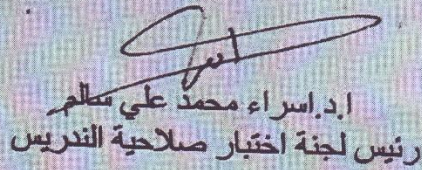 ا.د.اسراء محمد علي سالم
رئيس لجنة اختبار صلاحية التدريس